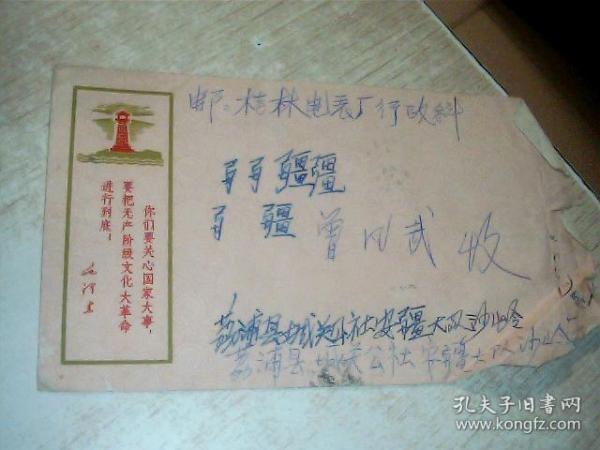 你们要关心国家大事,
要把无产阶级文化大革命
进行到底!
毛泽东
邮:桂林电表厂行政科
疆疆
疆 曾 武 收
荔浦县城关公社安疆大队沙岭
荔浦县城关公社安疆大队沙岭
孔夫子旧书网
www.kongfz.com